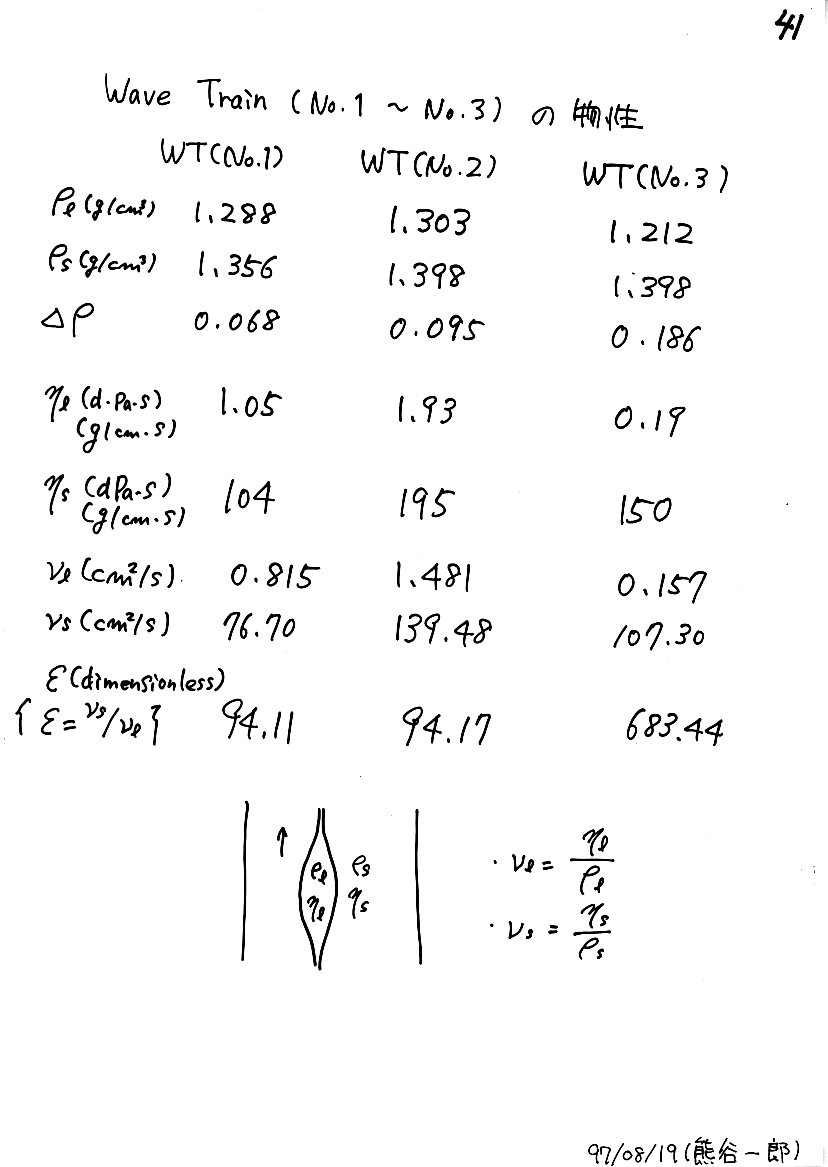 41
Wave Train (No.1 ~ No.3) の物性
WT(No.1) WT(No.2) WT(No.3)
ρℓ (g/cm³) 1.288 1.303 1.212
ρs (g/cm³) 1.356 1.398 1.398
Δρ 0.068 0.095 0.186
ηℓ (d·Pa·s) 1.05 1.93 0.19
(g/cm·s)
ηs (dPa·s) 104 195 150
(g/cm·s)
νℓ (cm²/s). 0.815 1.481 0.157
νs (cm²/s) 76.70 139.48 107.30
ε (dimensionless)
{ ε = νs/νℓ } 94.11 94.17 683.44
↑ ρℓ ρs
ηℓ ηs
· νℓ = ηℓ/ρℓ
· νs = ηs/ρs
97/08/19 (熊谷一郎)